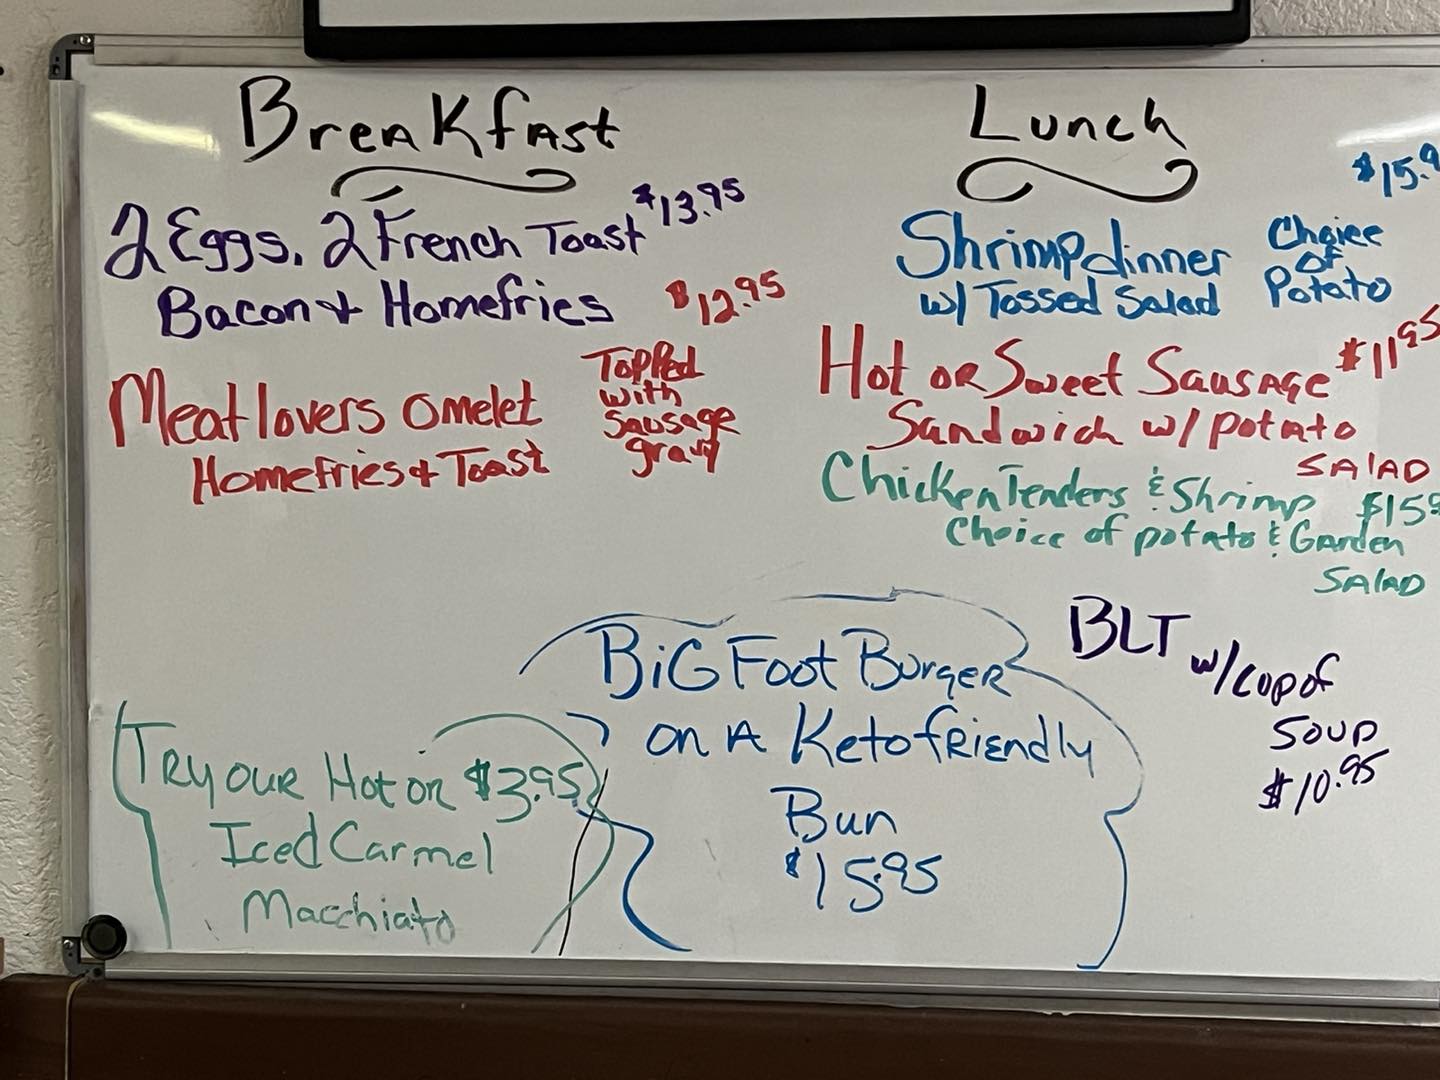 Breakfast
2 Eggs, 2 French Toast $13.95
Bacon & Homefries
Meatlovers Omelet $12.95
Homefries & Toast
Topped
with
Sausage
gravy
Lunch
Shrimp dinner
w/ Tossed Salad
Choice
of
Potato
$15.9
Hot or Sweet Sausage $11.95
Sandwich w/ potato
SALAD
Chicken Tenders & Shrimp $15
Choice of potato & Garden
SALAD
BLT w/ cup of
Soup
$10.95
BiG Foot Burger
on A Keto friendly
Bun
$15.95
Try our Hot or $3.95
Iced Carmel
Macchiato